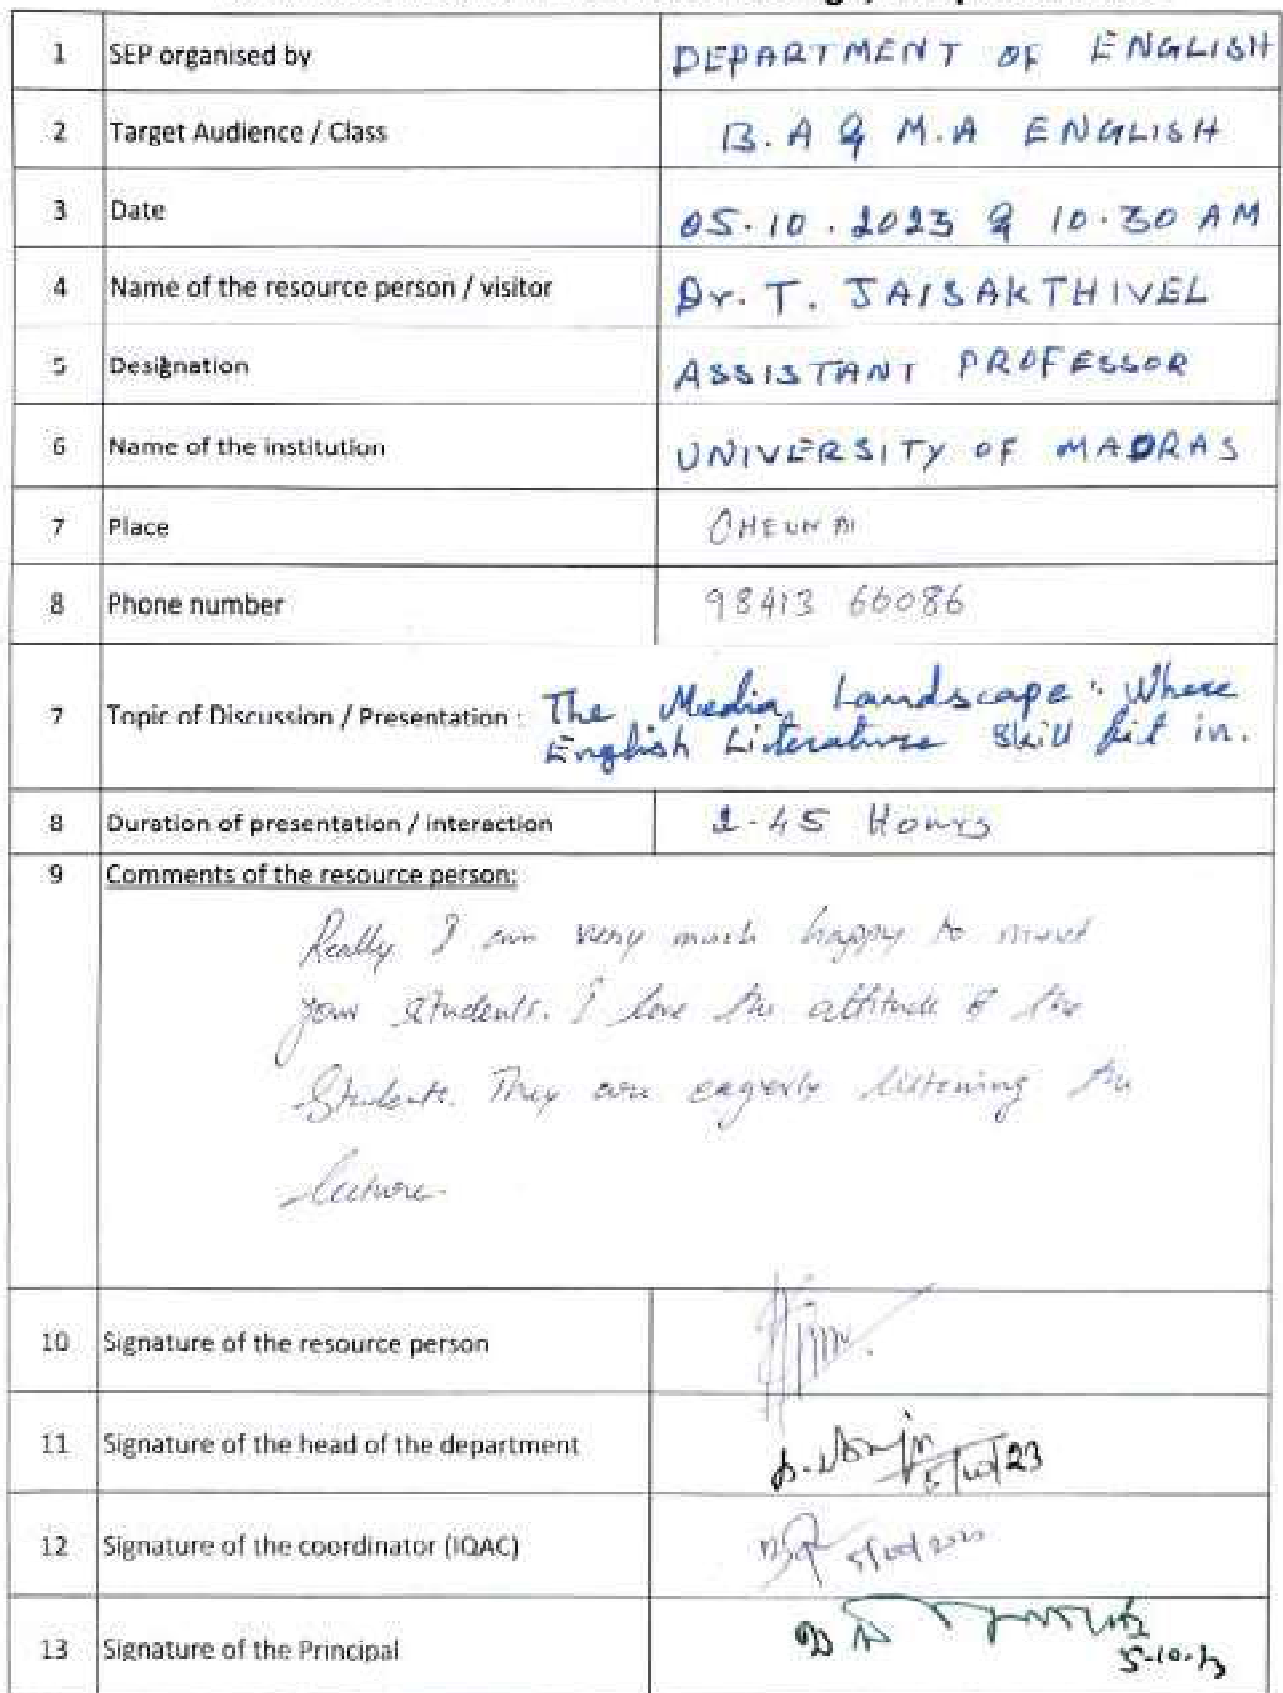 1 SEP organised by DEPARTMENT OF ENGLISH
2 Target Audience / Class B.A & M.A ENGLISH
3 Date 05.10.2023 & 10.30 AM
4 Name of the resource person / visitor Dr. T. JAISAKTHIVEL
5 Designation ASSISTANT PROFESSOR
6 Name of the institution UNIVERSITY OF MADRAS
7 Place CHENNAI
8 Phone number 98413 66086
7 Topic of Discussion / Presentation : The Media Landscape : Where
English Literature Skill fit in.
8 Duration of presentation / interaction 1-45 Hours
9 Comments of the resource person:
Really I am very much happy to
your students. I love the attitude of the
Students. They are eagerly listening the
lecture
10 Signature of the resource person
11 Signature of the head of the department
5/10/23
12 Signature of the coordinator (IQAC)
13 Signature of the Principal
5-10-23